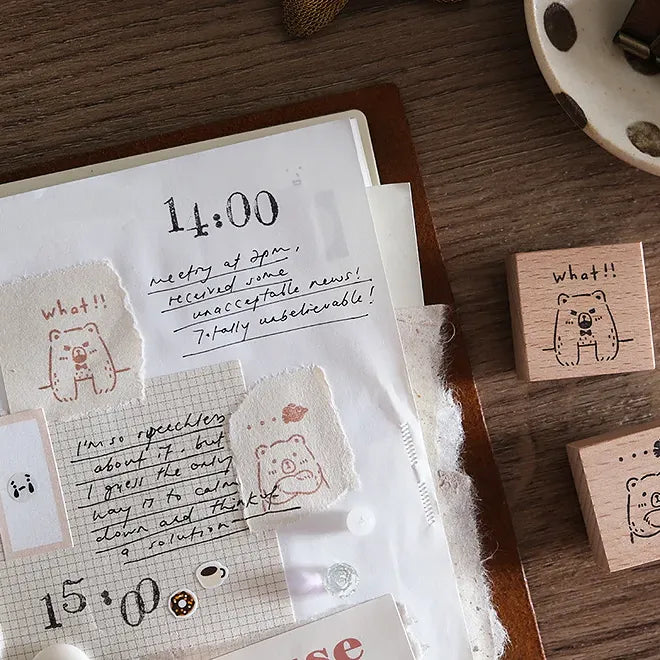 14:00
meeting at 2pm,
received some
unacceptable news!
Totally unbelievable!
what!!
I'm so speechless
about it, but
I guess the only
way is to calm
down and think of
a solution
15:00
se
what!!